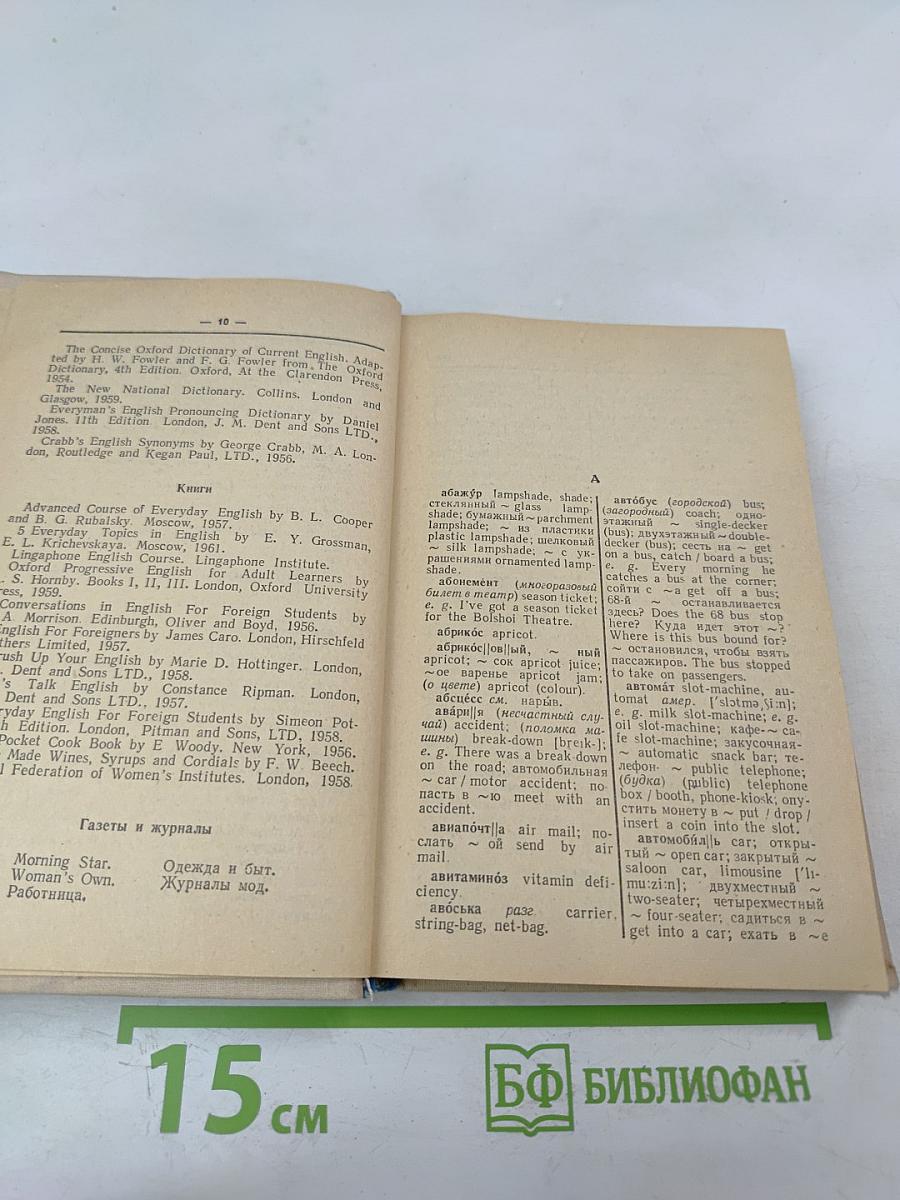 — 10 —
The Concise Oxford Dictionary of Current English. Adap-
ted by H. W. Fowler and F. G. Fowler from The Oxford
Dictionary, 4th Edition. Oxford, At the Clarendon Press,
1954.
The New National Dictionary. Collins. London and
Glasgow, 1959.
Everyman's English Pronouncing Dictionary by Daniel
Jones. 11th Edition. London, J. M. Dent and Sons LTD.,
1958.
Crabb's English Synonyms by George Crabb, M. A. Lon-
don, Routledge and Kegan Paul, LTD., 1956.
Книги
Advanced Course of Everyday English by B. L. Cooper
and B. G. Rubalsky. Moscow, 1957.
5 Everyday Topics in English by E. Y. Grossman,
E. L. Krichevskaya. Moscow, 1961.
Lingaphone English Course. Lingaphone Institute.
Oxford Progressive English for Adult Learners by
. S. Hornby. Books I, II, III. London, Oxford University
ress, 1959.
Conversations in English For Foreign Students by
A. Morrison. Edinburgh, Oliver and Boyd, 1956.
English For Foreigners by James Caro. London, Hirschfeld
thers Limited, 1957.
rush Up Your English by Marie D. Hottinger. London,
. Dent and Sons LTD., 1958.
's Talk English by Constance Ripman. London,
Dent and Sons LTD., 1957.
ryday English For Foreign Students by Simeon Pot-
h Edition. London, Pitman and Sons, LTD, 1958.
Pocket Cook Book by E Woody. New York, 1956.
Made Wines, Syrups and Cordials by F. W. Beech.
l Federation of Women's Institutes. London, 1958.
Газеты и журналы
Morning Star.
Woman's Own.
Работница.
Одежда и быт.
Журналы мод.
А
абажу́р lampshade, shade;
стеклянный ~ glass lamp-
shade; бумажный ~ parchment
lampshade; ~ из пластики
plastic lampshade; шелковый
~ silk lampshade; ~ с ук-
рашениями ornamented lamp-
shade.
абонеме́нт (многоразовый
билет в театр) season ticket;
e. g. I've got a season ticket
for the Bolshoi Theatre.
абрико́с apricot.
абрико́с||ов||ый, ~ ный
apricot; ~ сок apricot juice;
~ое варенье apricot jam;
(о цвете) apricot (colour).
абсце́сс см. нары́в.
ава́ри||я (несчастный слу-
чай) accident; (поломка ма-
шины) break-down [breɪk-];
e. g. There was a break-down
on the road; автомобильная
~ car / motor accident; по-
пасть в ~ю meet with an
accident.
авиапо́чт||а air mail; по-
слать ~ ой send by air
mail.
авитамино́з vitamin defi-
ciency.
аво́ська разг. carrier,
string-bag, net-bag.
авто́бус (городской) bus;
(загородный) coach; одно-
этажный ~ single-decker
(bus); двухэтажный ~ double-
decker (bus); сесть на ~ get
on a bus, catch / board a bus;
e. g. Every morning he
catches a bus at the corner;
сойти с ~а get off a bus;
68-й ~ останавливается
здесь? Does the 68 bus stop
here? Куда идет этот ~?
Where is this bus bound for?
~ остановился, чтобы взять
пассажиров. The bus stopped
to take on passengers.
автома́т slot-machine, au-
tomat амер. ['slɔtməˌʃi:n];
e. g. milk slot-machine; e. g.
oil slot-machine; кафе-~ ca-
fe slot-machine; закусочная-
~ automatic snack bar; те-
лефон- ~ public telephone;
(будка) (public) telephone
box / booth, phone-kiosk; опу-
стить монету в ~ put / drop /
insert a coin into the slot.
автомоби́л||ь car; откры-
тый ~ open car; закрытый ~
saloon car, limousine ['lɪ-
mu:zi:n]; двухместный ~
two-seater; четырехместный
~ four-seater; садиться в ~
get into a car; ехать в ~е
15 см
БФ БИБЛИОФАН